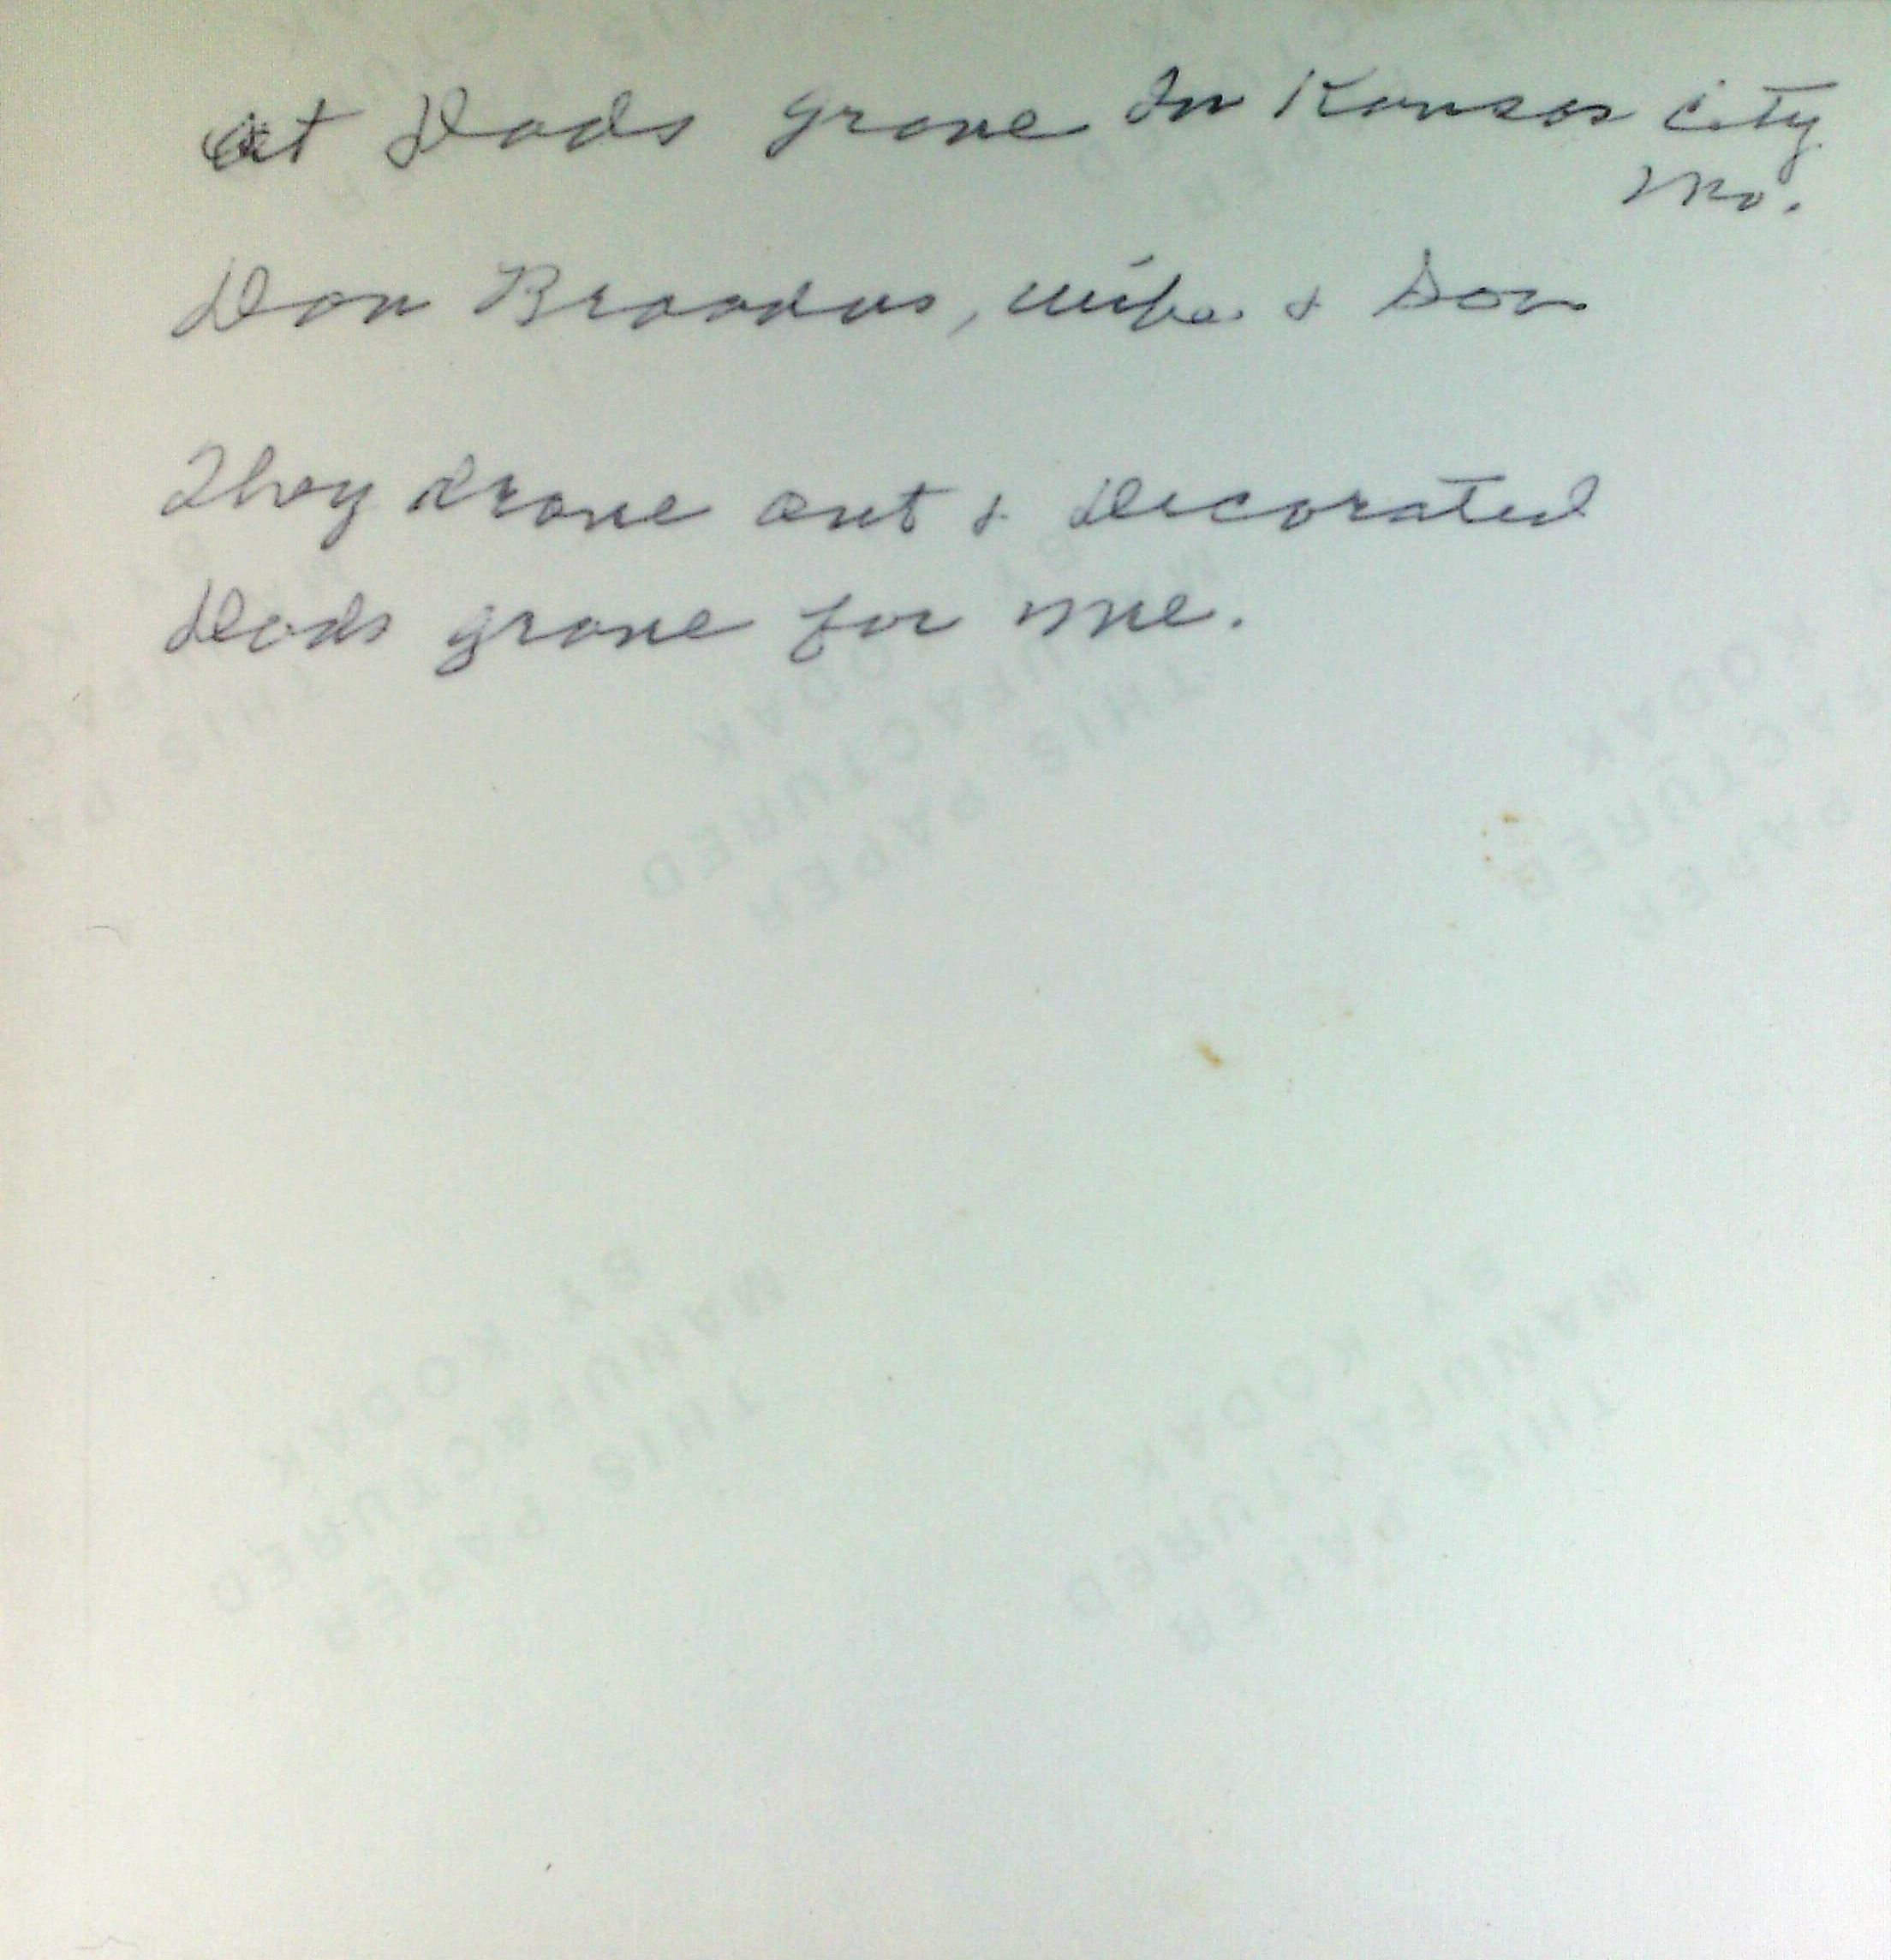 At Dads grave In Kansas City
Mo.
Don Broadus, wife & Son
They drove out & Decorated
Dads grave for me.
THIS PAPER
MANUFACTURED
BY KODAK
THIS PAPER
MANUFACTURED
BY KODAK
THIS PAPER
MANUFACTURED
BY KODAK